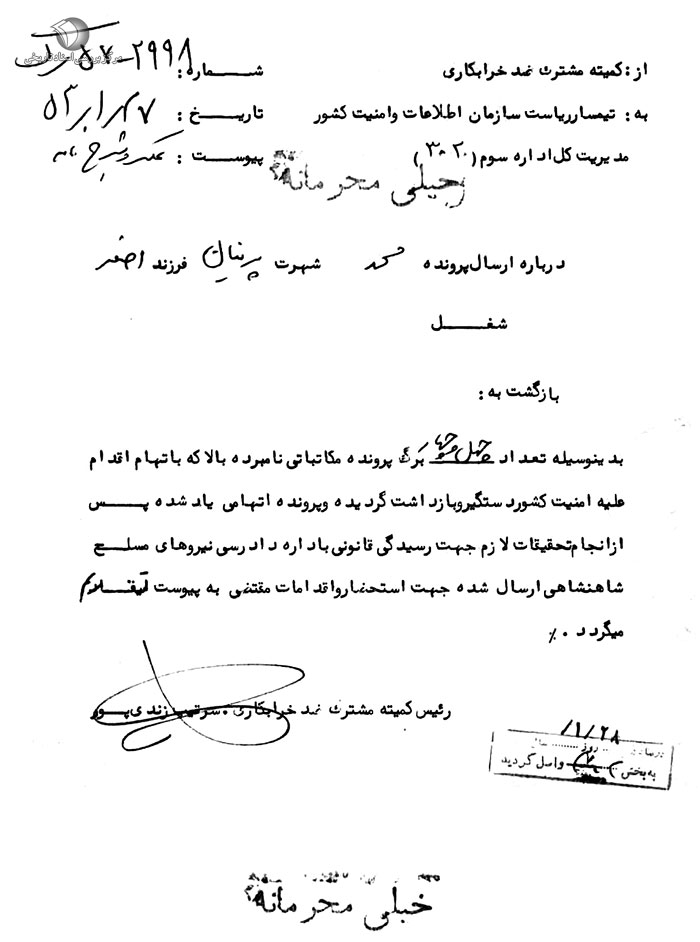 مرکز بررسی اسناد تاریخی
از: کمیته مشترک ضد خرابکاری شماره:
به: تیمسار ریاست سازمان اطلاعات وامنیت کشور تاریخ:
مدیریت کل اداره سوم ( ۳۰۲۰ ) پیوست:
خیلی محرمانه
درباره ارسال پرونده محمد شهرت فرزند اصغر
شغل
بازگشت به:
بدینوسیله تعداد چهل و برگ پرونده مکاتباتی نامبرده بالا که باتهام اقدام
علیه امنیت کشور دستگیر و بازداشت گردیده و پرونده اتهامی یاد شده پس
از انجام تحقیقات لازم جهت رسیدگی قانونی باداره دادرسی نیروهای مسلح
شاهنشاهی ارسال شده جهت استحضار و اقدامات مقتضی به پیوست تقدیم
میگردد ۰٪
رئیس کمیته مشترک ضد خرابکاری ۰ سرتیپ زندی پور
/۱/۲۸
روز سال
به بخش واصل گردید
خیلی محرمانه